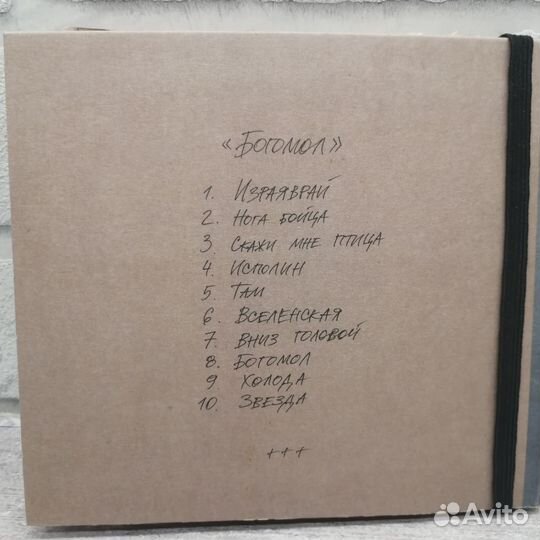 «Богомол»
1. Израяврай
2. Нога бойца
3. Скажи мне птица
4. Исполин
5. Там
6. Вселенская
7. Вниз головой
8. Богомол
9. Холода
10. Звезда
+++
Avito